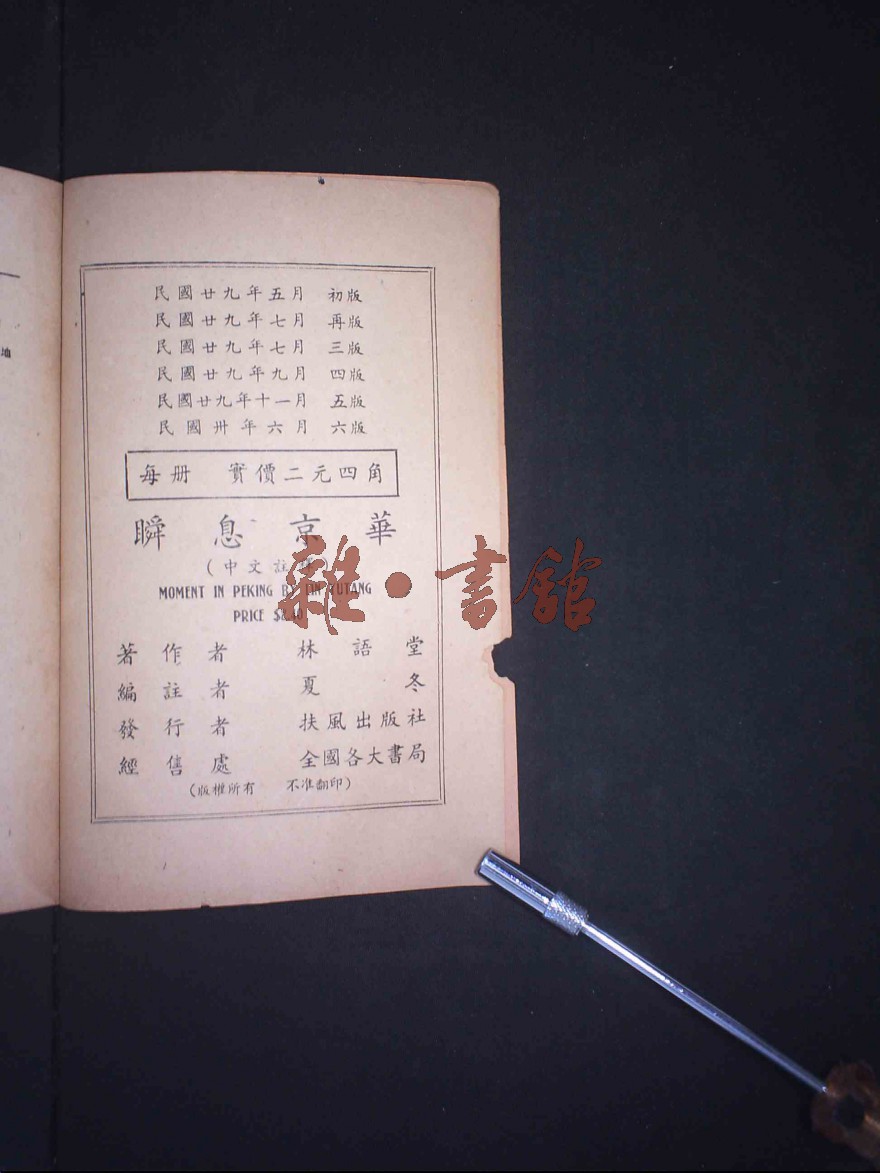 民國廿九年五月　初版
民國廿九年七月　再版
民國廿九年七月　三版
民國廿九年九月　四版
民國廿九年十一月　五版
民國卅年六月　六版
每册　實價二元四角
瞬息京華
(中文註
MOMENT IN PEKING BY LIN YUTANG
PRICE $2.40
雜·書館
著作者　林語堂
編註者　夏冬
發行者　扶風出版社
經售處　全國各大書局
(版權所有　不准翻印)